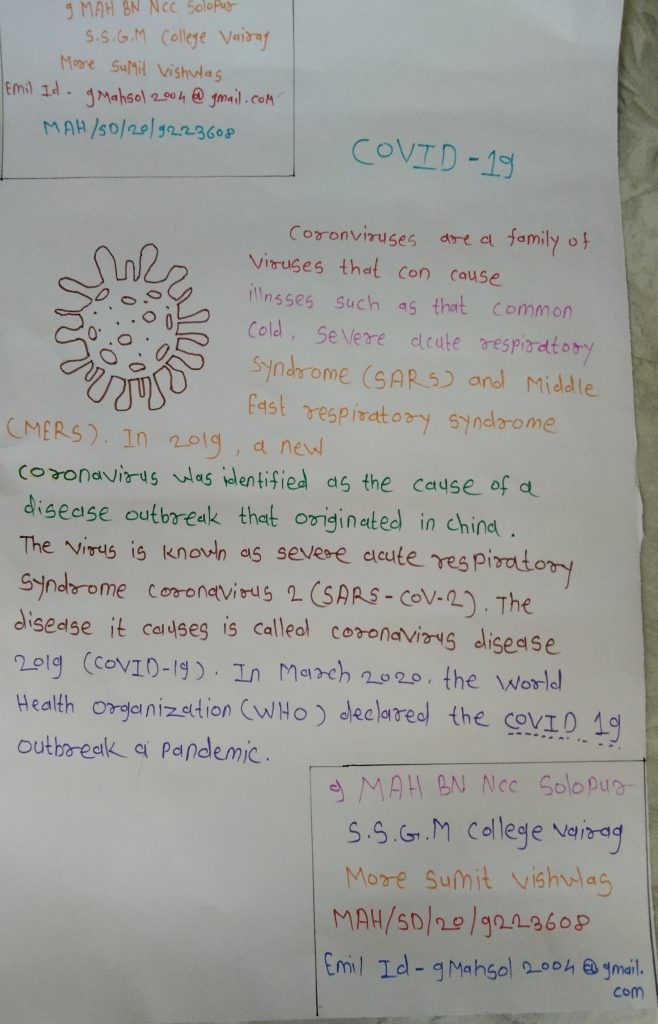 9 MAH BN NCC Solopur
S.S.G.M College Vairag
More Sumit Vishwas
Emil Id - 9Mahsol2004@gmail.com
MAH/SD/20/9223608
COVID-19
Coronviruses are a family of
Viruses that con cause
illnsses such as that common
Cold, Severe acute respiratory
Syndrome (SARS) and Middle
East respiratory syndrome
(MERS). In 2019, a new
coronavirus was identified as the cause of a
disease outbreak that originated in china.
The Virus is known as severe acute respiratory
Syndrome coronavirus 2 (SARS-CoV-2). The
disease it causes is called coronavirus disease
2019 (COVID-19). In March 2020, the World
Health organization (WHO) declared the COVID 19
outbreak a pandemic.
9 MAH BN NCC Solopur
S.S.G.M College Vairag
More Sumit Vishwas
MAH/SD/20/9223608
Emil Id - 9Mahsol2004@gmail.
com